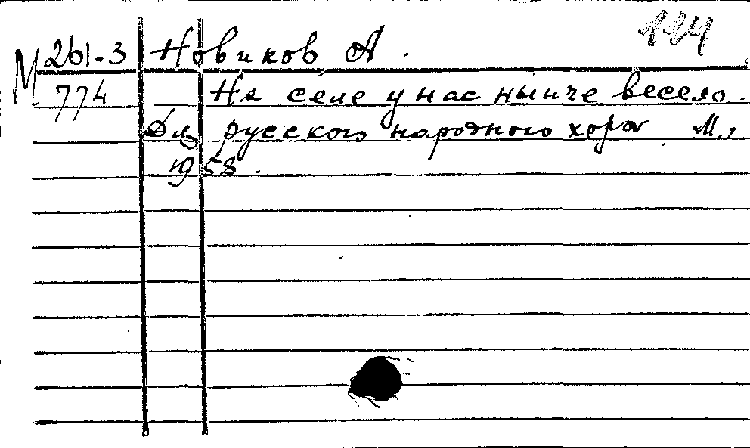 М 261-3 Новиков А.
774 На селе у нас нынче весело.
Для русского народного хора М.,
1958.